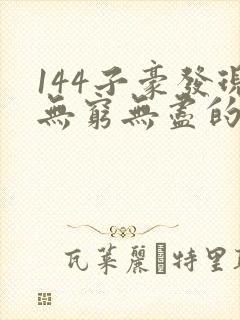 144子豪發現
無窮無盡的
瓦萊麗 特里